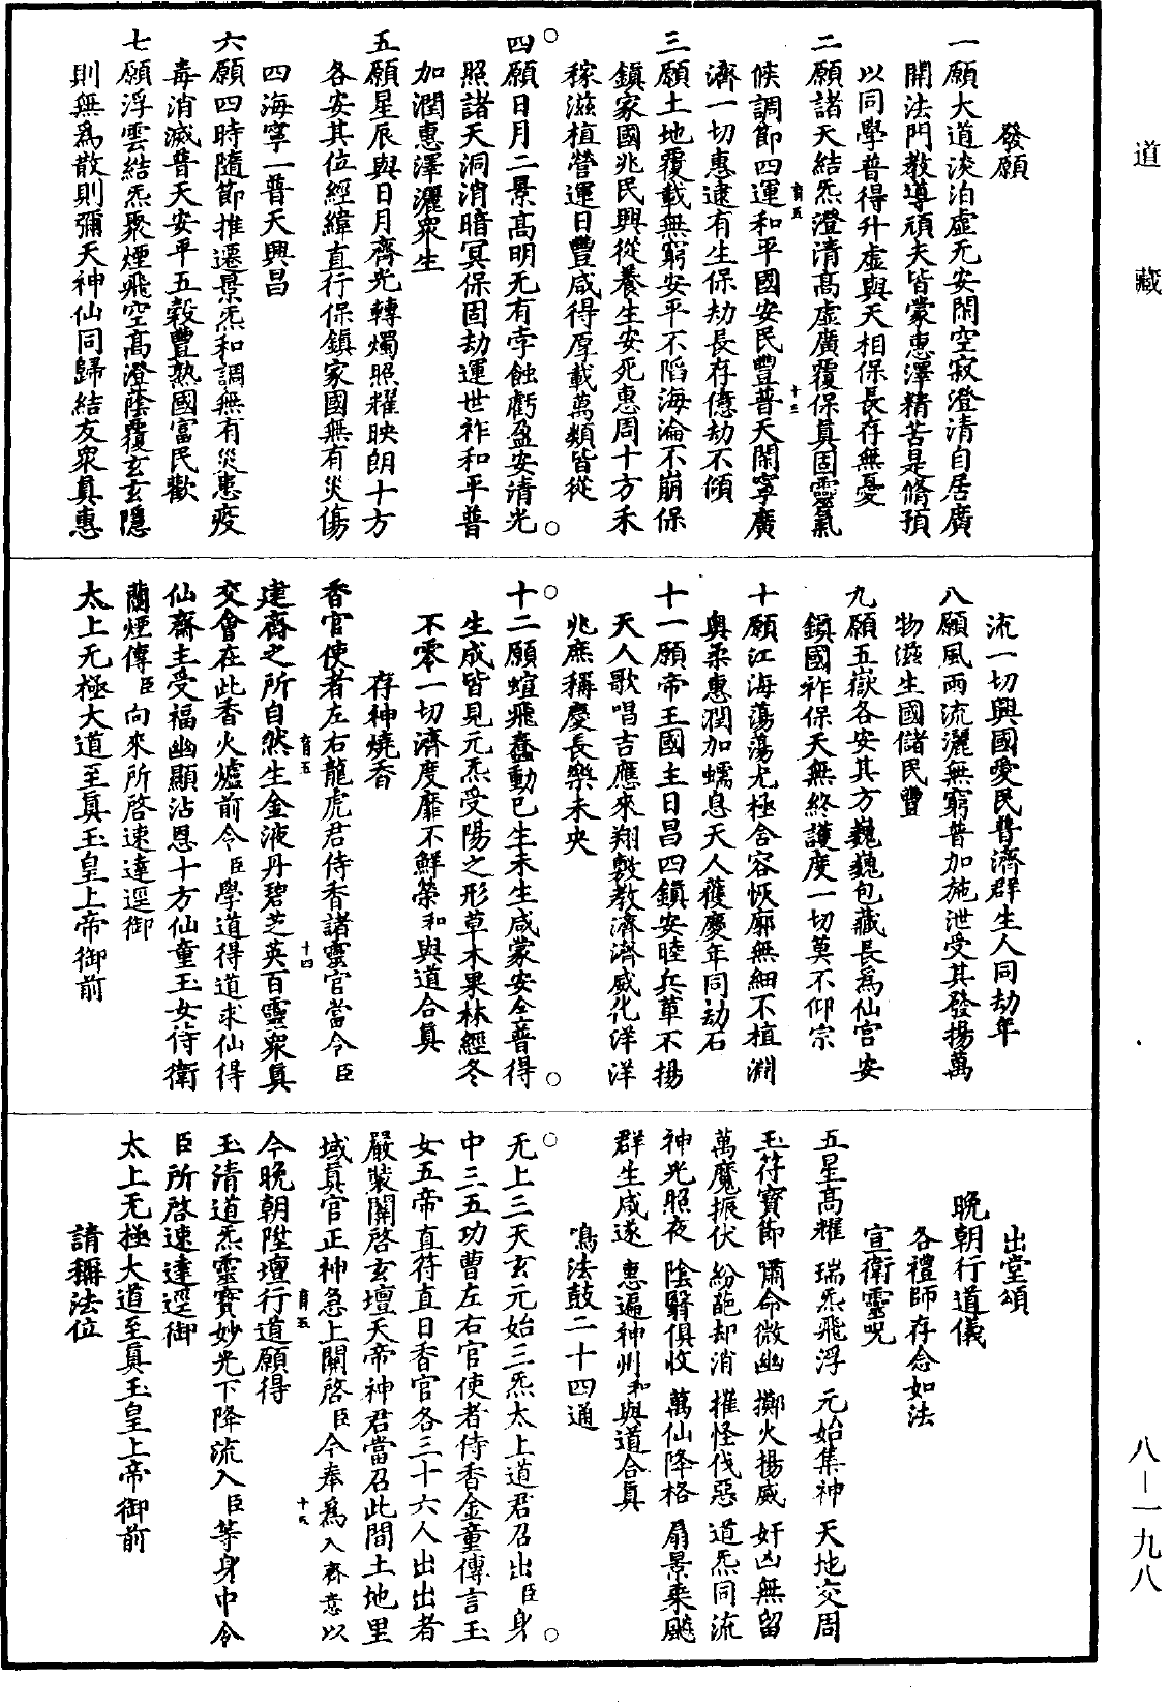 道藏
八—一九八
發願
一願大道淡泊虛无安閑空寂澄清自居廣
開法門教導頑夫皆蒙惠澤精苦是脩預
以同學普得升虛與天相保長存無憂
二願諸天結炁澄清高虛廣覆保真固靈氣
候調節四運和平國安民豐普天閑寧廣
濟一切惠逮有生保劫長存億劫不傾
三願土地覆載無窮安平不陷海淪不崩保
鎮家國兆民興從養生安死惠周十方禾
稼滋植營運日豐咸得厚載萬類皆從
四願日月二景高明无有孛蝕虧盈安清光
照諸天洞消暗冥保固劫運世祚和平普
加潤惠澤灑衆生
五願星辰與日月齊光轉燭照耀映朗十方
各安其位經緯直行保鎮家國無有災傷
四海寧一普天興昌
六願四時隨節推遷景炁和調無有災恚疫
毒消滅普天安平五穀豐熟國富民歡
七願浮雲結炁聚煙飛空高澄蔭覆玄玄隱
則無爲散則彌天神仙同歸結友衆真惠
流一切興國愛民普濟群生人同劫年
八願風雨流灑無窮普加施泄受其發揚萬
物滋生國儲民豐
九願五嶽各安其方巍巍包藏長爲仙宮安
鎮國祚保天無終護度一切莫不仰宗
十願江海蕩蕩尤極含容恢廓無細不植淵
奧柔惠潤加蠕息天人獲慶年同劫石
十一願帝王國主日昌四鎮安睦兵革不揚
天人歌唱吉應來翔敷教濟濟威化洋洋
兆庶稱慶長樂未央
十二願蝖飛蠢動已生未生咸蒙安全普得
生成皆見元炁受陽之形草木果林經冬
不零一切濟度靡不鮮榮和與道合真
存神燒香
香官使者左右龍虎君侍香諸靈官當令臣
建齋之所自然生金液丹碧芝英百靈衆真
交會在此香火爐前令臣學道得道求仙得
仙齋主受福幽顯沾恩十方仙童玉女侍衛
蘭煙傳臣向來所啓速達逕御
太上无極大道至真玉皇上帝御前
出堂頌
晚朝行道儀
各禮師存念如法
宣衛靈咒
五星高耀 瑞炁飛浮 元始集神 天地交周
玉符寶節 肅命微幽 擲火揚威 奸凶無留
萬魔振伏 紛葩却消 摧怪伐惡 道炁同流
神光照夜 陰翳俱收 萬仙降格 扇景乘飈
群生咸遂 惠遍神州和與道合真
鳴法鼓二十四通
无上三天玄元始三炁太上道君召出臣身
中三五功曹左右官使者侍香金童傳言玉
女五帝直符直日香官各三十六人出出者
嚴裝關啓玄壇天帝神君當召此間土地里
域真官正神急上關啓臣今奉爲入齋意以
今晚朝陞壇行道願得
玉清道炁靈寶妙光下降流入臣等身中令
臣所啓速達逕御
太上无極大道至真玉皇上帝御前
請稱法位